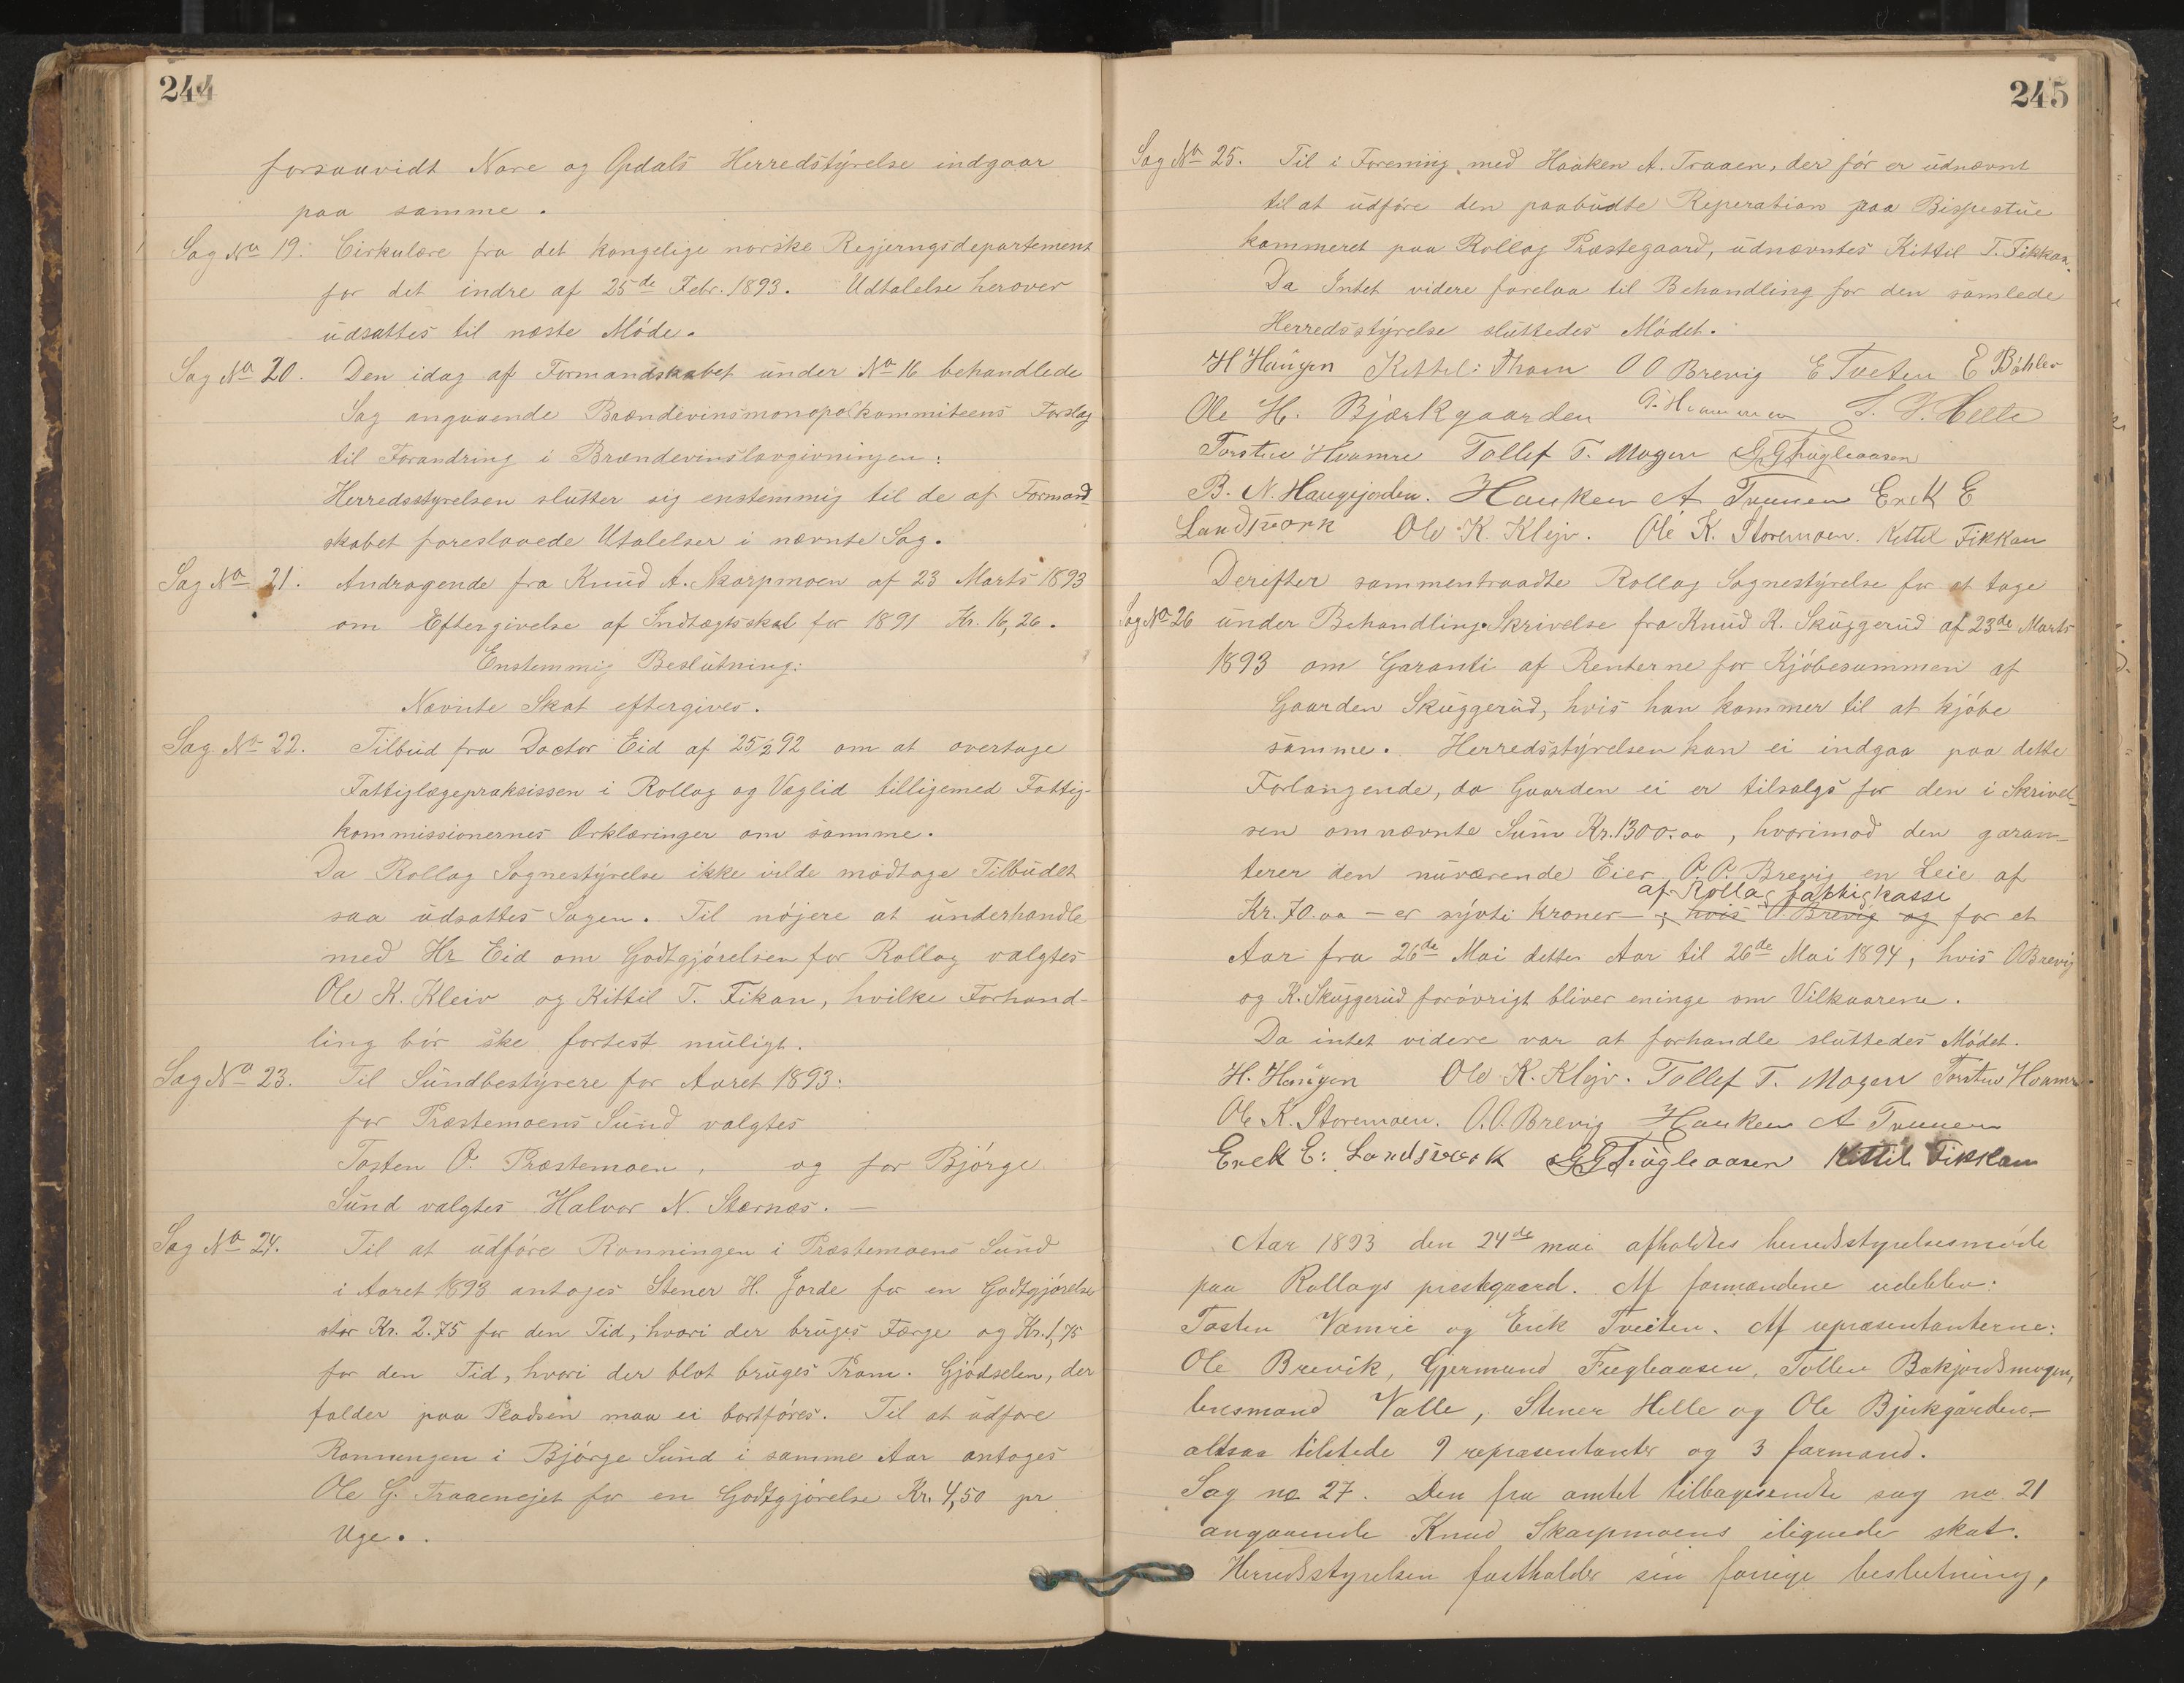 244
forsaavidt Nore og Opdals Herredstyrelse indgaar
paa samme.
Sag No 19. Cirkulære fra det kongelige norske Regjerngsdepartement
for det indre af 25de Febr. 1893. Udtalelse herover
udsattes til næste Møde.
Sag No 20. Den idag af Formandskabet under No 16 behandlede
Sag angaaende Brændevinsmonopolkommiteens Forslag
til Forandring i Brændevinslovgivningen:
Herredsstyrelsen slutter sig enstemmig til de af Formand-
skabet foreslaaede Utalelser i nævnte Sag.
Sag No 21. Andragende fra Knud A. Skarpmoen af 23 Marts 1893
om Eftergivelse af Indtægtsskat for 1891 Kr. 16,26.
Enstemmig Beslutning:
Nævnte Skat eftergives.
Sag No 22. Tilbud fra Doctor Eid af 25/2 92 om at overtage
Fattiglægepraksissen i Rollag og Veglid tilligemed Fattig-
kommissionernes Erklæringer om samme.
Da Rollag Sognestyrelse ikke vilde modtage Tilbudet
saa udsattes Sagen. Til nøjere at underhandle
med Hr Eid om Godtgjørelsen for Rollag valgtes
Ole K. Kleiv og Kittil T. Fikan, hvilke Forhand-
ling bør ske fortest muligt.
Sag No 23. Til Sundbestyrere for Aaret 1893:
for Præstemoens Sund valgtes
Tosten O. Præstemoen, og for Bjørge
Sund valgtes Halvor N. Stærnæs. —
Sag No 24. Til at udføre Ronningen i Præstemoens Sund
i Aaret 1893 antages Stener H. Jorde for en Godtgjørelse
stor Kr. 2.75 for den Tid, hvori der bruges Færge og Kr. 1,75
for den Tid, hvori der blot bruges Pram. Gjødselen, der
falder paa Pladsen maa ei bortføres. Til at udføre
Ronningen i Bjørge Sund i samme Aar antages
Ole G. Traaenejet for en Godtgjørelse Kr. 4,50 pr
Uge.
245
Sag No 25. Til i Forening med Haaken A. Traaen, der før er udnævnt
til at udføre den paabudte Reperation paa Bispestue
kammeret paa Rollag Præstegaard, udnævntes Kittil T. Fikkan.
Da Intet videre forelaa til Behandling for den samlede
Herredsstyrelse sluttedes Mødet.
H Haugen Kettil: Thom O O Brevig E Tveten E Bøhler
Ole H. Bjærkgaarden S. Helle
Torsten Hvamre Tollef T. Mogen G G Fugleaasen
B. N. Haugejorden. Haaken A Traaen Erek E
Landsværk Ole K. Klejv. Ole K. Storemoen. Kettil Fikkan
Derefter sammentraadte Rollag Sognestyrelse for at tage
Sag No 26 under Behandling Skrivelse fra Knud K. Skuggerud af 23de Marts
1893 om Garanti af Renterne for Kjøbesummen af
Gaarden Skuggerud, hvis han kommer til at kjøbe
samme. Herredsstyrelsen kan ei indgaa paa dette
Forlangende, da Gaarden ei er tilsalgs for den i Skrivel-
sen omnævnte Sum Kr. 1300.00, hvorimod den garan-
terer den nuværende Eier O. O. Brevig en Leie af
af Rollag fattigkasse
Kr. 70.00 – er sytti Kroner – ; hvis O. Brevig og for et
Aar fra 26de Mai dette Aar til 26de Mai 1894, hvis O Brevig
og K. Skuggerud forøvrigt bliver eninge om Vilkaarene.
Da intet videre var at forhandle sluttedes Mødet.
H. Haugen Ole K. Klejv. Tollef T. Mogen Torsten Hvamre
Ole K. Storemoen. O. O. Brevig Haaken A Traaen
Erek E: Landsværk G G Fugleaasen Kittil Fikkan
Aar 1893 den 24de mai afholdtes herredsstyrelsesmøde
paa Rollags prestegaard. Af formændene udeblev:
Tosten Vamre og Erik Tveiten. Af repræsentanterne:
Ole Brevik, Gjermund Fugleaasen, Tollev Bakjordsmogen,
lensmand Valle, Stener Helle og Ole Bjerkgården –
altsaa tilstede 9 repræsentanter og 3 formænd.
Sag no 27. Den fra amtet tilbagesendte sag no 21
angaaende Knud Skarpmoens ilignede skat.
Herredsstyrelsen fastholder sin forrige beslutning,